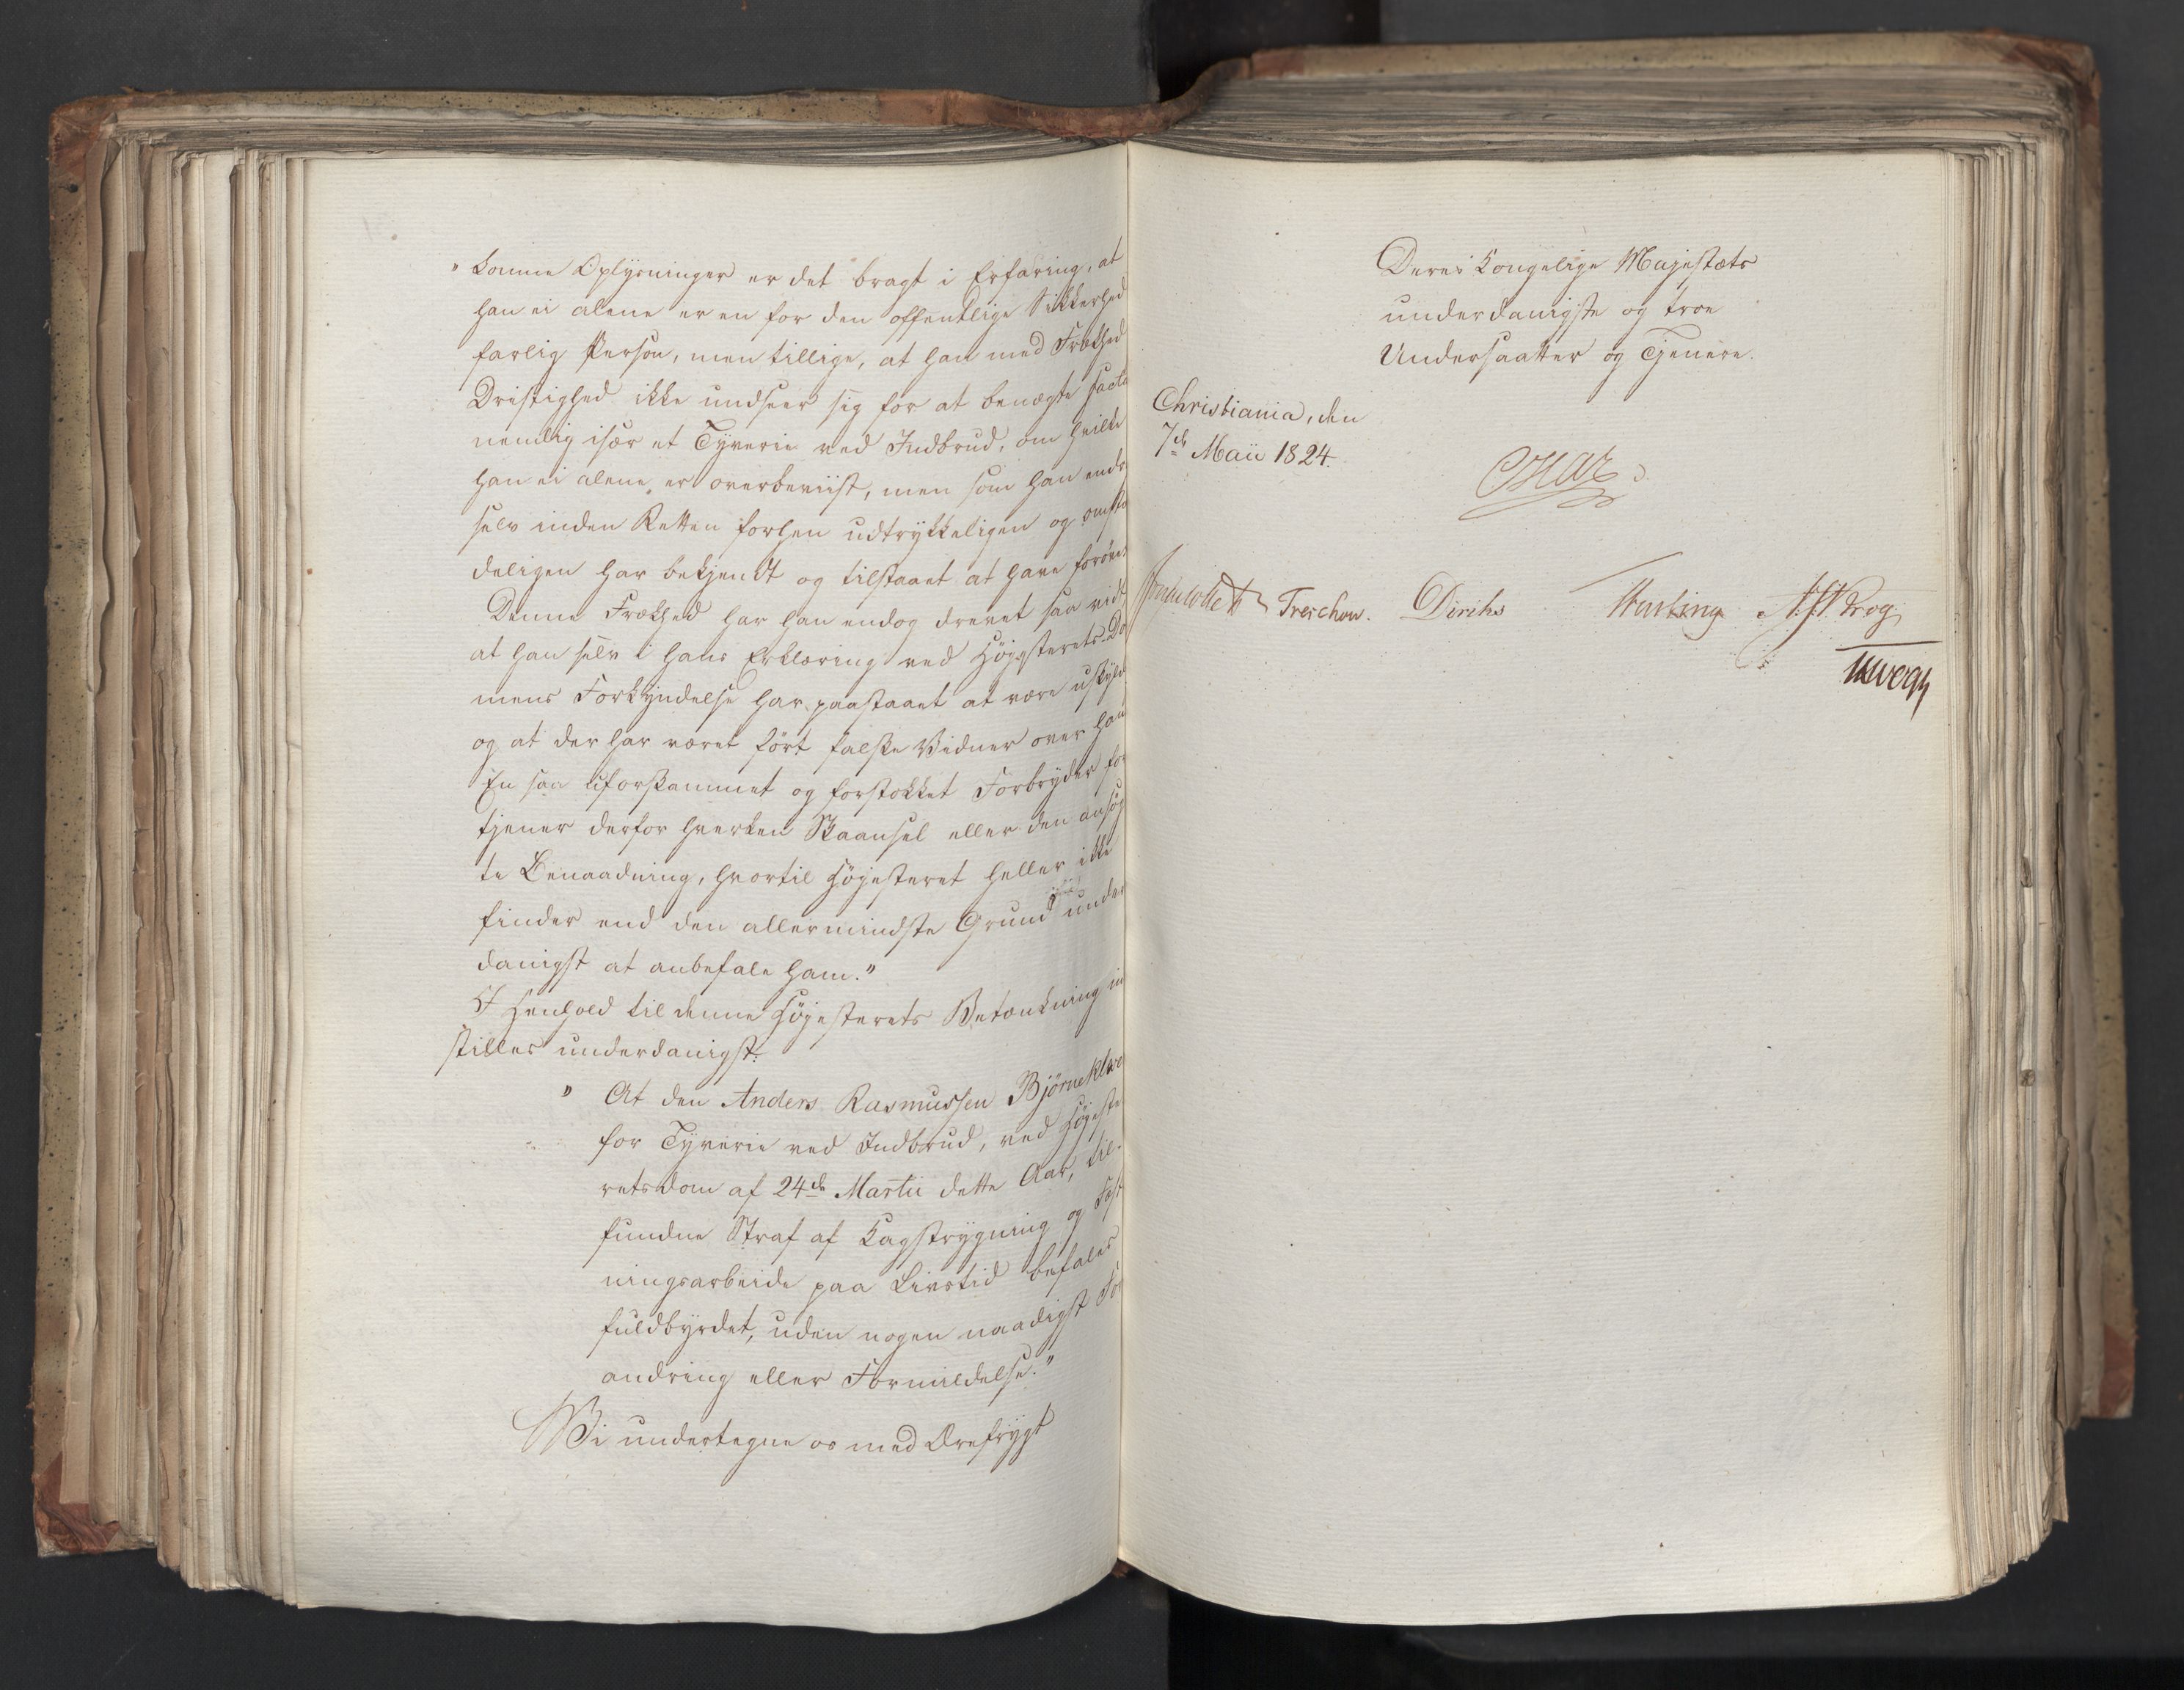 " komne Oplysninger er det bragt i Erfaring, at
han ei alene er en for den offentlige Sikkerhed
farlig Person, men tillige, at han med Frækhed
Dristighed ikke undseer sig for at benægte facta
nemlig især et Tyverie ved Indbrud, om hvilke
han ei alene er overbeviist, men som han endo
selv inden Retten forhen udtrykkeligen og omstæ
deligen har bekjendt og tilstaaet at have forøvet
Denne Frækhed har han endog drevet saa vidt
at han selv i hans Erklæring ved Höjesterets-Do
mens Forkyndelse har paastaaet at være uskyld
og at der har været ført falske Vidner over ham
En saa uforskammet og forstokket Forbryder for
tjener derfor hverken Skaansel eller den ansøg
te Benaadning, hvortil Höjesteret heller ikke
finder end den allermindste Grund under
danigst at anbefale ham."
I Henhold til denne Höjesterets Betænkning in
stilles underdanigst:
" At den Anders Rasmussen Björneklo
for Tyverie ved Indbrud, ved Höjeste
retsdom af 24de Martii dette Aar, til-
fundne Straf af Kagstrygning og Fæst
ningsarbeide paa Livstid befales
fuldbyrdet, uden nogen naadigst For
andring eller Formildelse."
Vi undertegne os med Ærefrygt
Deres Kongelige Majestæts
underdanigste og troe
Undersaatter og Tjenere.
Christiania, den
7de Maii 1824.
Treschow. Diriks Krog